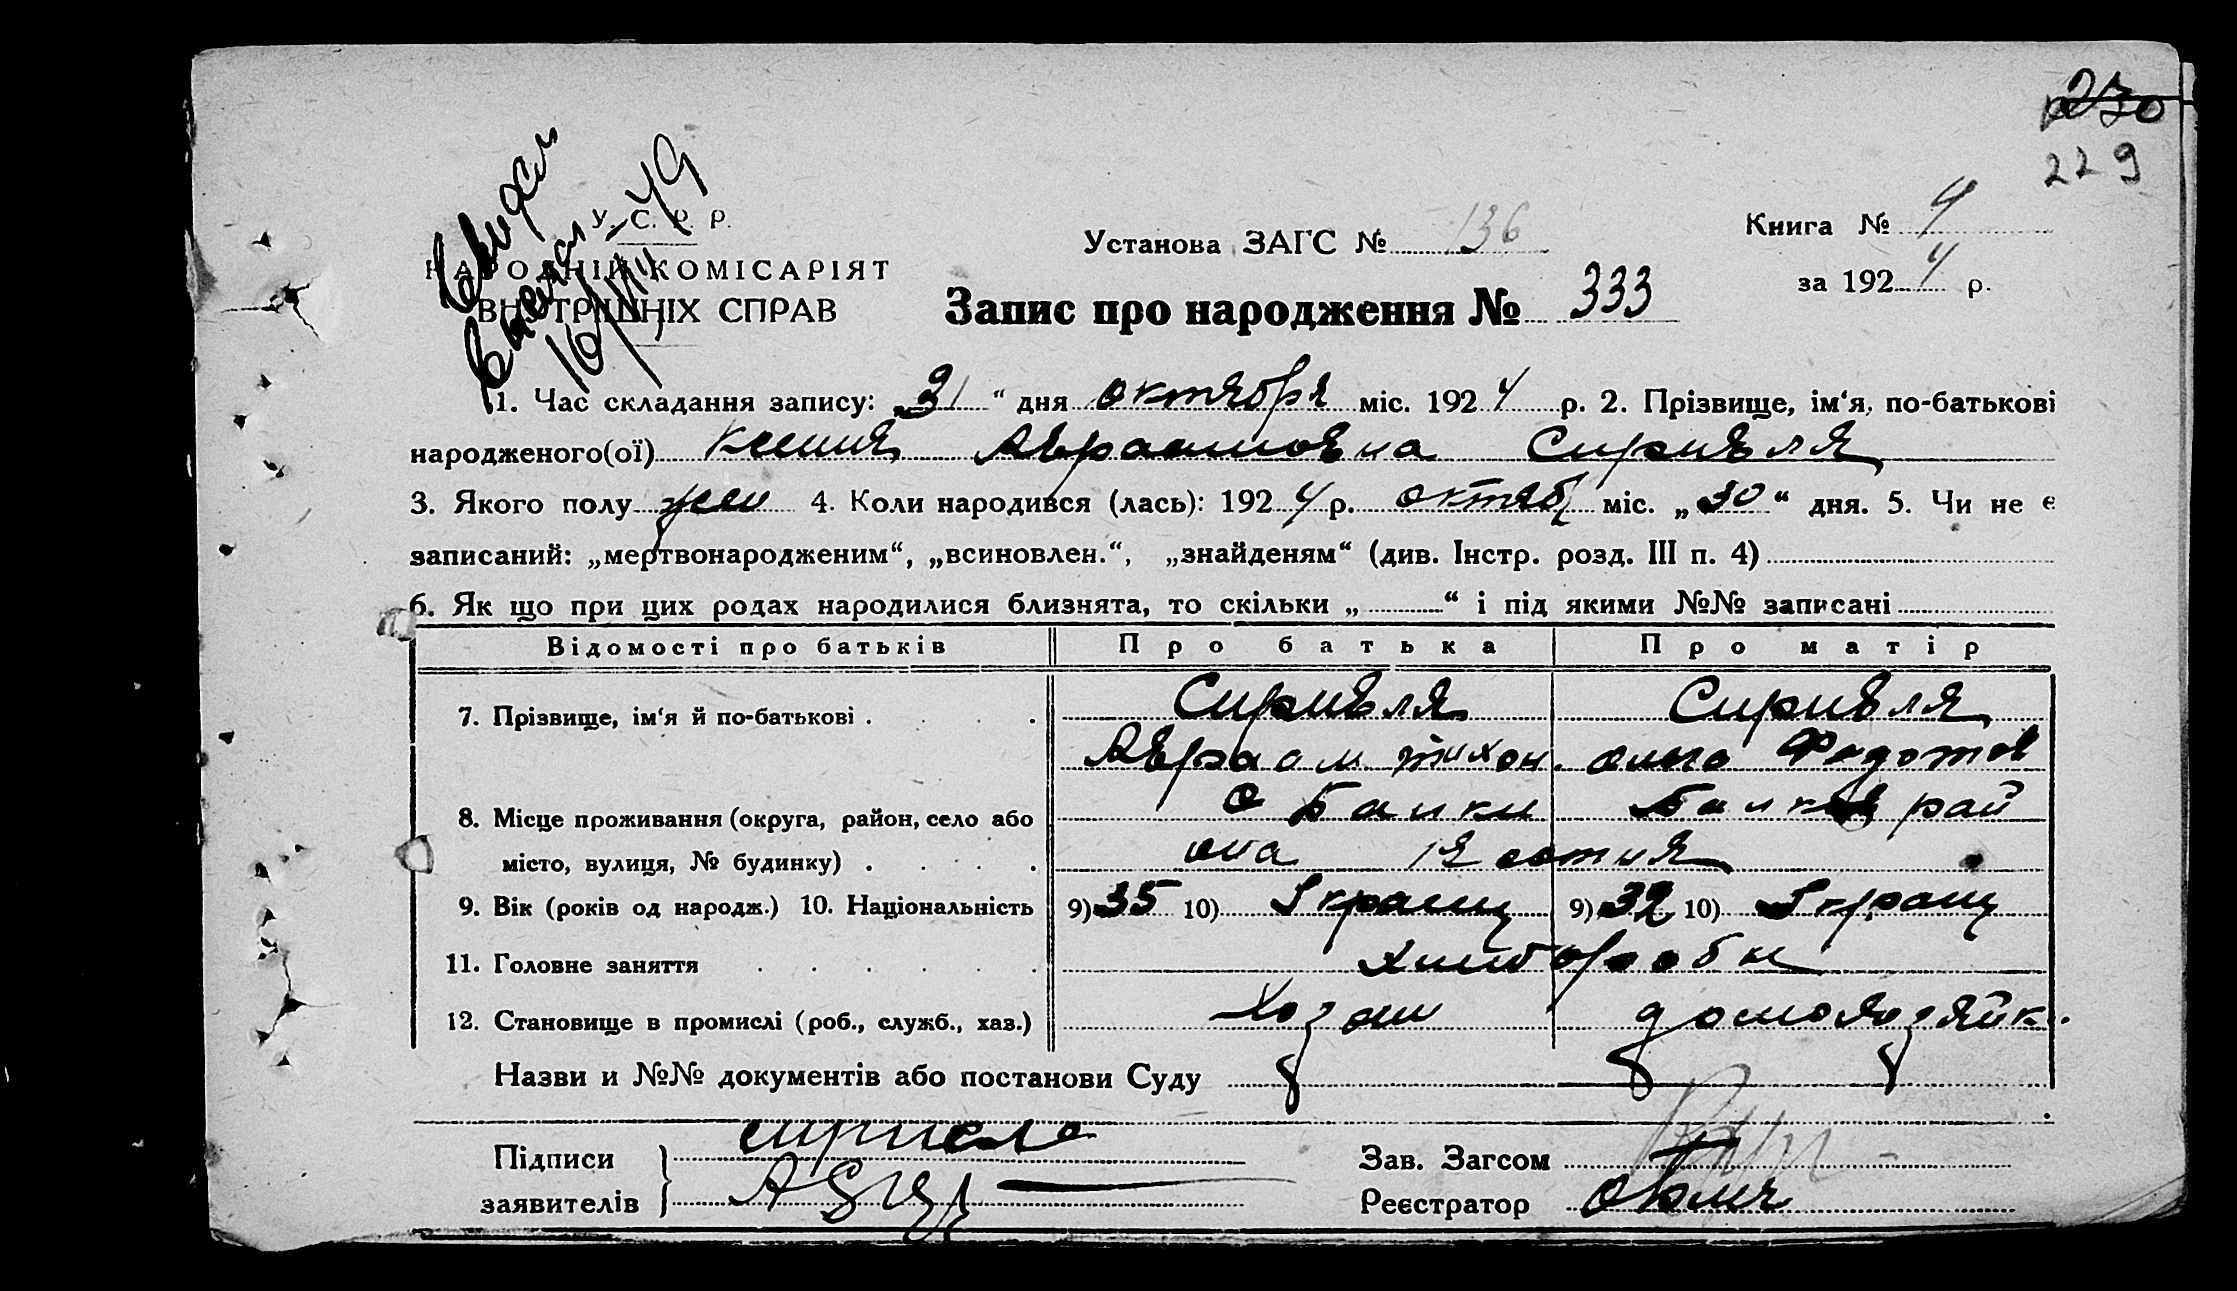 230
229
У. С. Р. Р.
НАРОДНІЙ КОМІСАРІЯТ
ВНУТРІШНІХ СПРАВ
Установа ЗАГС № 136
Книга № 4
за 1924 р.
Запис про народження № 333
1. Час складання запису: „31“ дня октября міс. 1924 р. 2. Прізвище, ім‘я, по-батькові
народженого(ої) Ксения Авраамовна
3. Якого полу жен 4. Коли народився (лась): 1924 р. октяб міс. „30“ дня. 5. Чи не є
записаний: „мертвонародженим“, „всиновлен.“, „знайденям“ (див. Інстр. розд. III п. 4)
6. Як що при цих родах народилися близнята, то скільки „ “ і під якими №№ записані
Відомості про батьків Про батька Про матір
7. Прізвище, ім‘я й по-батькові
Авраам Тихон.
8. Місце проживання (округа, район, село або
місто, вулиця, № будинку)
с Балки рай
она 1я сотня
9. Вік (років од народж.) 10. Національність 9) 35 10) Украин 9) 32 10) Украин
11. Головне заняття хлибороби
12. Становище в промислі (роб., служб., хаз.) Хозяин домохозяйк.
Назви и №№ документів або постанови Суду
Підписи
заявителів
Зав. Загсом
Реєстратор